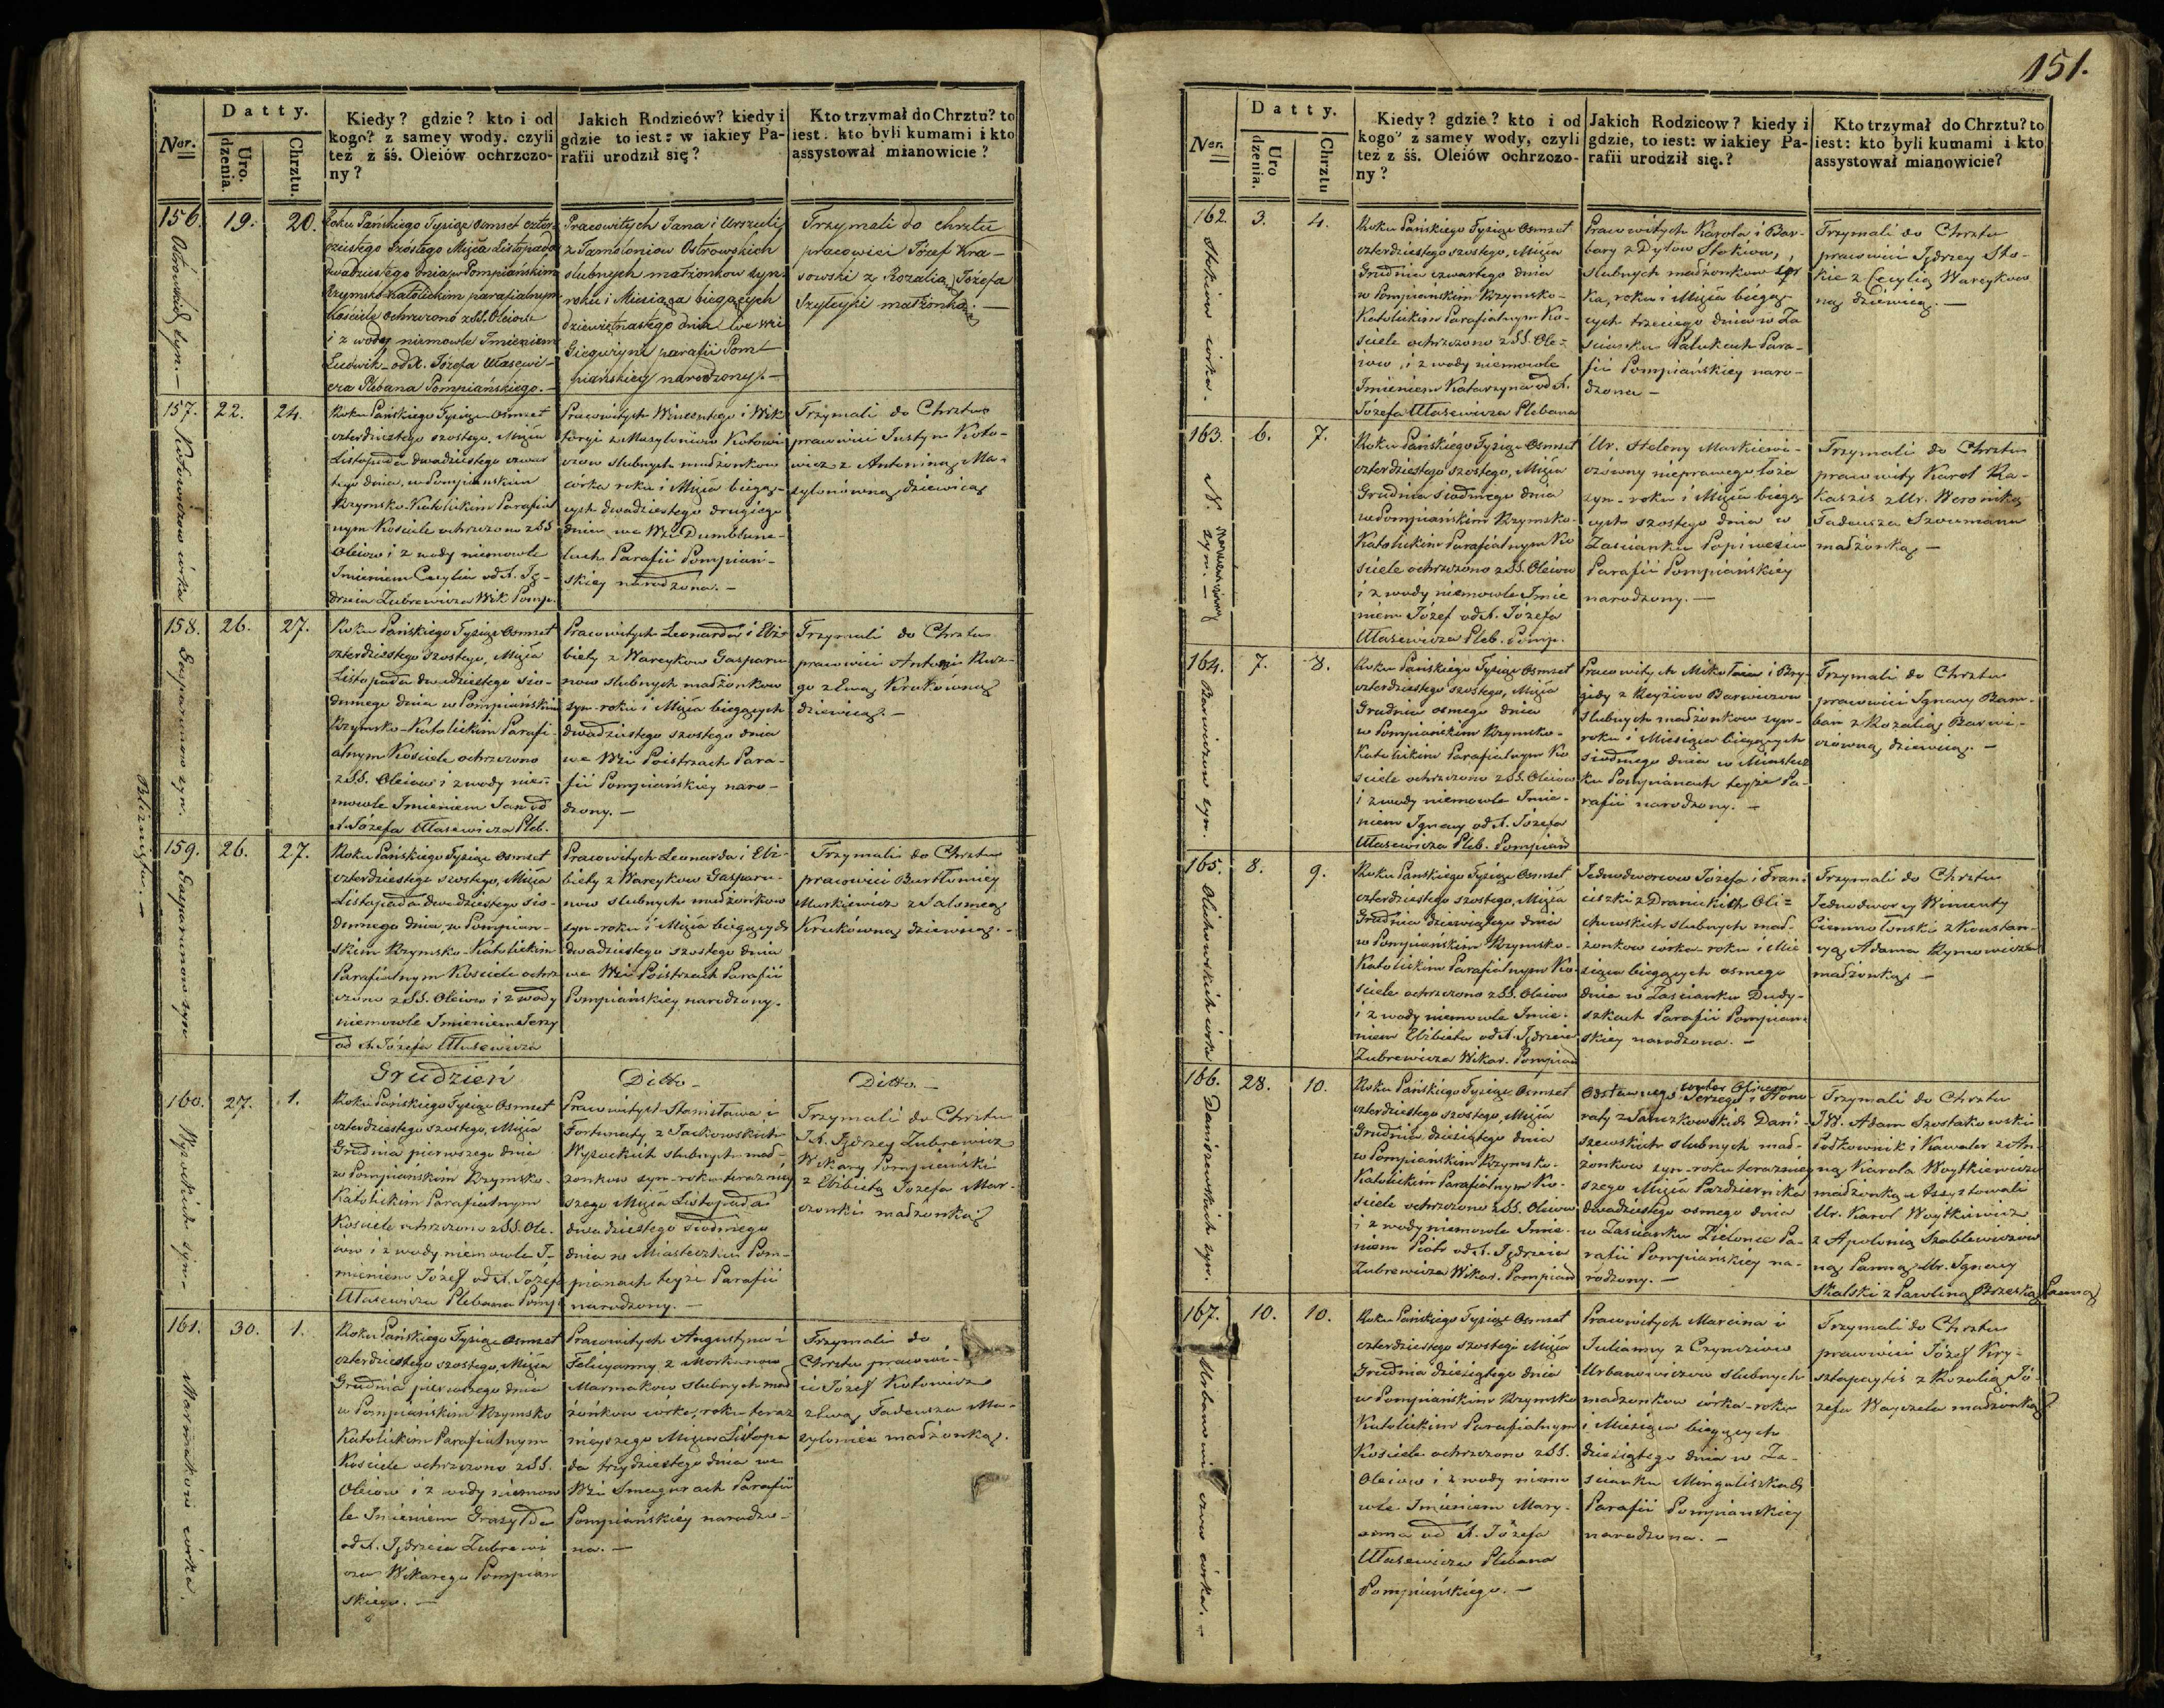 151.
Datty.
Nar.
Uro.
dzenia.
Chrztu.
Kiedy? gdzie? kto i od
kogo? z samey wody, czyli
też z śś. Oleiów ochrzczo-
ny?
Jakich Rodziców? kiedy i
gdzie to iest: w iakiey Pa-
rafii urodził się?
Kto trzymał do Chrztu? to
iest: kto byli kumami i kto
assystował mianowicie?
156. 19. 20.
Ostrowskich syn.—
Roku Pańskiego Tysiąc Osmset czter-
dziestego szóstego Mięca Listopada
dwadziestego dnia w Pompiańskim
Rzymsko-Katolickim parafialnym
Kościele ochrzczono z SS. Oleiow
i z wody niemowle Imieniem
Ludwik od X. Józefa Ułasewi-
cza Plebana Pompiańskiego.—
Pracowitych Jana i Urszuli
z Ostrowskich
slubnych małżonkow syn
roku i Miesiąca biegących
dziewiętnastego dnia we wsi
parafii Pom-
piańskiey narodzony.—
Trzymali do chrztu
pracowici Józef Kra-
sowski z Rozalią Józefa
małżonką.—
157. 22. 24.
Kotowiczow corka
Roku Pańskiego Tysiąc Osmset
czterdziestego szostego, Mięca
Listopada dwadziestego czwar
tego dnia, w Pompiańskim
Rzymsko-Katolickim Parafial
nym Kościele ochrzczono z SS
Oleiow i z wody niemowle
Imieniem Cecylia od X. Ję-
drzeia Zubrewicza Wik Pomp.
Pracowitych Wincentego i Wik
toryi z Mazyloniow Kotowi
czow slubnych małżonkow
corka roku i Mięca biegą-
cych dwadziestego drugiego
dnia we Wsi Dumblune-
lach Parafii Pompiań-
skiey narodzona.—
Trzymali do Chrztu
pracowici Justyn Koto-
wicz z Antoniną Ma-
zylonówną dziewicą
158. 26. 27.
Gasparunow syn.
Bliznięta.—
Roku Pańskiego Tysiąc Osmset
czterdziestego szostego, Mięca
Listopada dwudziestego sio-
dmego dnia w Pompiańskim
Rzymsko-Katolickim Parafi
alnym Kościele ochrzczono
z SS. Oleiow i z wody nie-
mowle Imieniem Jan od
X. Józefa Ułasewicza Pleb.
Pracowitych Leonarda i Elż-
biety z Wareykow Gasparu
now slubnych małżonkow
syn-roku i Mięca biegących
dwadziestego szostego dnia
we Wsi Poistrzach Para-
fii Pompiańskiey naro-
dzony.—
Trzymali do Chrztu
pracowici Antoni Ruz-
go z Ewą Krukówną
dziewicą.—
159. 26. 27.
Gasparunow syn
Roku Pańskiego Tysiąc Osmset
czterdziestego szostego, Mięca
Listopada dwadziestego sio-
dmego dnia, w Pompiań-
skim Rzymsko-Katolickim
Parafialnym Kosciele ochrz
czono z SS. Oleiow i z wody
niemowle Imieniem Jerzy
od X. Józefa Ułasewicza
Pracowitych Leonarda i Elż-
biety z Wareykow Gasparu-
now slubnych małżonkow
syn-roku i Mięca biegących
dwadziestego szostego dnia
we Wsi Poistrzach Parafii
Pompiańskiey narodzony.
Trzymali do Chrztu
pracowici Bartłomiey
Markiewicz z Salomeą
Krukówną dziewicą.-
Grudzień Ditto- Ditto.-
160. 27. 1.
Wysockich syn-
Roku Pańskiego Tysiąc Osmset
czterdziestego szostego, Mięca
Grudnia pierwszego dnia
w Pompiańskim Rzymsko-
Katolickim Parafialnym
Kosciele ochrzczono z SS. Ole-
iow i z wody niemowle I-
mieniem Józef od X. Józefa
Ułasewicza Plebana Pomp.
Pracowitych Stanisława i
Fortunaty z Jackowskich
Wysockich slubnych mał-
żonkow syn-roku teraźniey
szego Mięca Listopada
dwadziestego siodmego
dnia w Miasteczku Pom-
pianach teyże Parafii
narodzony.—
Trzymali do Chrztu
J.X. Jędrzey Zubrewicz
Wikary Pompiański
z Elżbietą Józefa Mar-
małżonką
161. 30. 1.
Marmakow córka.
Roku Pańskiego Tysiąc Osmset
czterdziestego szostego, Mięca
Grudnia pierwszego dnia
w Pompiańskim Rzymsko
Katolickim Parafialnym
Kościele ochrzczono z SS.
Oleiow i z wody niemow
le Imieniem Grasylda
od X. Jędrzeia Zubrewi
cza Wikarego Pompiań
skiego.—
Pracowitych Augustyna i
Felicyanny z Morkunow
Marmakow slubnych mał
żonkow corka, roku teraz
nieyszego Mięca Listopa
da trzydziestego dnia we
Wsi Smagurach Parafii
Pompiańskiey narodzo-
na.—
Trzymali do
Chrztu pracowi-
ci Józef Kotowicz
z Ewą Tadeusza Ma-
zylonia małżonką.
Datty.
Ner.
Uro
dzenia.
Chrztu
Kiedy? gdzie? kto i od
kogo? z samey wody, czyli
też z śś. Oleiów ochrzczo-
ny?
Jakich Rodzicow? kiedy i
gdzie, to iest: w iakiey Pa-
rafii urodził się.?
Kto trzymał do Chrztu? to
iest: kto byli kumami i kto
assystował mianowicie?
162. 3. 4.
Stokiow corka.
Roku Pańskiego Tysiąc Osmset
czterdziestego szostego, Mięca
Grudnia czwartego dnia
w Pompiańskim Rzymsko-
Katolickim Parafialnym Ko-
ściele ochrzczono z SS. Ole-
iow, i z wody niemowle
Imieniem Katarzyna od X.
Józefa Ułasewicza Plebana
Pracowitych Karola i Bar-
bary z Dylow Stokiow,
slubnych małżonkow cór
ka, roku i Mięca biegą-
cych trzeciego dnia w Za
scianku Pałukach Para-
fii Pompiańskiey naro-
dzona—
Trzymali do Chrztu
pracowici Jędrzey Sto-
kis z Cecylią Wareykow
ną dziewicą.—
163. 6. 7.
N. Markiewiczowny
syn.—
Roku Pańskiego Tysiąc Osmset
czterdziestego szostego, Mięca
Grudnia siodmego dnia
w Pompiańskim Rzymsko-
Katolickim Parafialnym Ko
ściele ochrzczono z SS. Oleiow
i z wody niemowle Imie
niem Józef od X. Józefa
Ułasewicza Pleb. Pomp.
Ur. Heleny Markiewi-
czówny nieprawego łoża
syn-roku i Mięca biegą
cych szostego dnia w
Zascianku Popiwesiu
Parafii Pompiańskiey
narodzony.—
Trzymali do Chrztu
pracowity Karol Ra-
kaszis z Ur. Weroniką
Tadeusza Szoumana
małżonką—
164. 7. 8.
Barwiczow syn.
Roku Pańskiego Tysiąc Osmset
czterdziestego szostego, Mięca
Grudnia osmego dnia
w Pompiańskim Rzymsko-
Katolickim Parafialnym Ko
ściele ochrzczono z SS. Oleiow
i z wody niemowle Imie-
niem Ignacy od X. Józefa
Ułasewicza Pleb. Pompiań
Pracowitych Mikołaia i Bry-
gidy z Reyżiow Barwiczow
slubnych małżonkow syn-
roku i Miesiąca biegących
siodmego dnia w Miastecz
ku Pompianach teyże Pa-
rafii narodzony.—
Trzymali do Chrztu
pracowici Ignacy Bam-
ban z Rozalią Barwi-
czówną dziewicą.—
165. 8. 9.
Olechowskich córka
Roku Pańskiego Tysiąc Osmset
czterdziestego szostego, Mięca
Grudnia dziewiątego dnia
w Pompiańskim Rzymsko-
Katolickim Parafialnym Ko-
ściele ochrzczono z SS. Oleiow
i z wody niemowle Imie-
niem Elżbieta od X. Jędrzeia
Zubrewicza Wikar. Pompiań
Jednodworcow Józefa i Fran-
ciszki z Dranickich Ole-
chowskich slubnych mał-
żonkow corka-roku i Mie
siąca biegących osmego
dnia w Zascianku Dudy-
szkach Parafii Pompiań-
skiey narodzona.—
Trzymali do Chrztu
Jednodworcy Wincenty
Ciemnołoński z Konstan-
cyą Adama Rymowicza
małżonką—
166. 28. 10.
Daniszewskich syn.
Roku Pańskiego Tysiąc Osmset
czterdziestego szostego, Mięca
Grudnia dziesiątego dnia
w Pompiańskim Rzymsko-
Katolickim Parafialnym Ko-
ściele ochrzczono z SS. Oleiow
i z wody niemowle Imie-
niem Piotr od X. Jędrzeia
Zubrewicza Wikar. Pompiań
Odstawnego unter Oficera Jerzego i Hono-
raty z Janczkowskich Dani-
szewskich slubnych mał-
żonkow syn-roku teraźniey
szego Mięca Pazdziernika
dwadziestego osmego dnia
w Zascianku Zielonce Pa-
rafii Pompiańskiey na-
rodzony.—
Trzymali do Chrztu
JW. Adam Szostakowski
Połkownik i Kawaler z An-
ną Karola Woytkiewicza
małżonką Assystowali
Ur. Karol Woytkiewicz
z Apolonią Szablewiczow
ną Panną Ur. Ignacy
Skalski z Pauliną Brzeską Panną
167. 10. 10.
Urbanowiczow córka.—
Roku Pańskiego Tysiąc Osmset
czterdziestego szostego Mięca
Grudnia dziesiątego dnia
w Pompiańskim Rzymsko
Katolickim Parafialnym
Kościele ochrzczono z SS.
Oleiow i z wody niemo
wle Imieniem Mary-
anna od X. Józefa
Ułasewicza Plebana
Pompiańskiego.—
Pracowitych Marcina i
Julianny z Czyniziow
Urbanowiczow slubnych
małżonkow córka-roku
i Miesiąca biegących
dziesiątego dnia w Za-
scianku Mingaliszkach
Parafii Pompiańskiey
narodzona.—
Trzymali do Chrztu
pracowici Józef Kry-
sztapaytis z Rozalią Jó-
zefa Wayczela małżonką